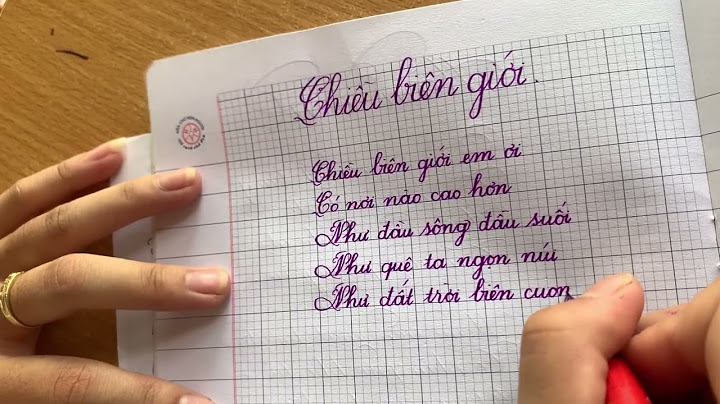 Chiều biên giới.
Chiều biên giới em ơi
Có nơi nào cao hơn
Như đầu sông đầu suối
Như quê ta ngọn núi
Như đất trời biên cuon